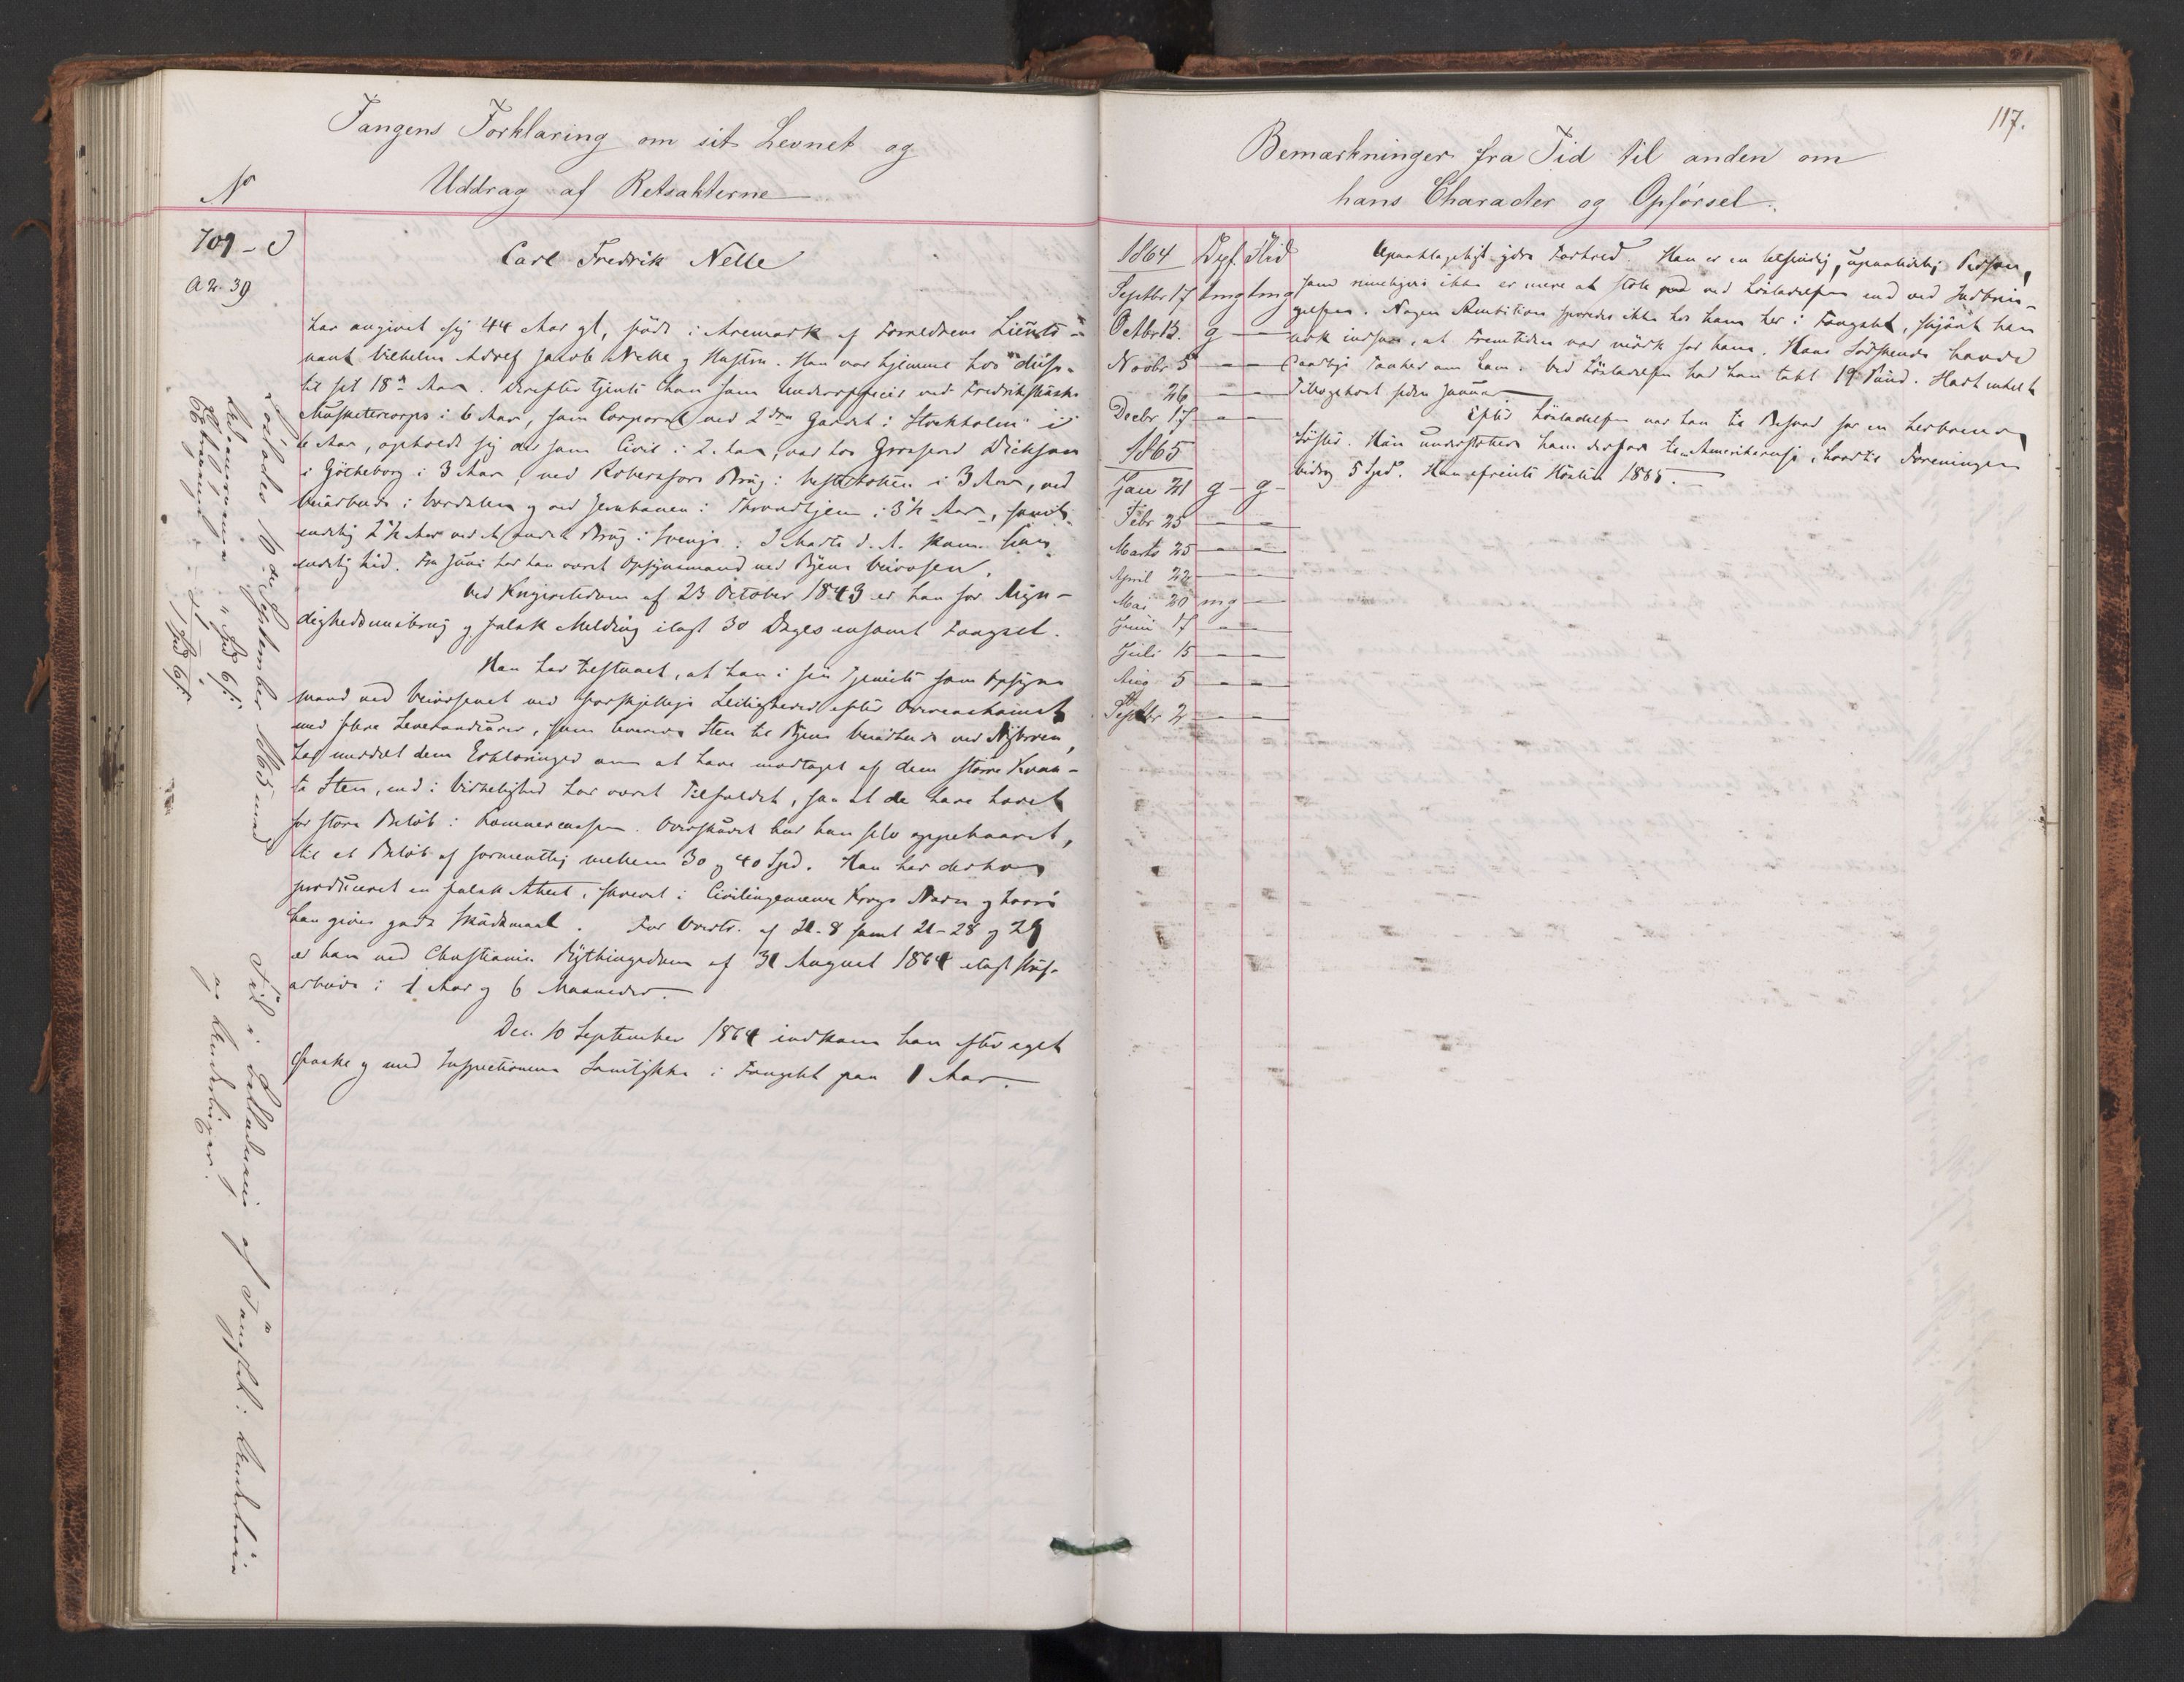 Fangens Forklaring om sit Levnet og
Uddrag af Retsakterne
No
709 - J
A 2. 39
Carl Fredrik Nelle
har angivet sig 44 Aar gl, født i Aremark af Forældrene Lieute-
nant Vilhelm Adolf Jacob Nelle og Hustru. Han var hjemme hos disse
til sit 18de Aar. Derefter tjente han som Underofficir ved Fredrikshaldske
Musketercorps i 6 Aar, som Corporal ved 2den Garde i Stockholm i
6 Aar, opholdt sig der som Civil i 2 Aar, var hos Grosserer Dickson
i Götheborg i 3 Aar, ved Robersfors Brug i Vesterbotten i 3 Aar, ved
Veiarbeide i Værdalen og ved Jernbanen i Throndhjem i 3½ Aar, samt
endelig 2½ Aar ved et andet Brug i Sverige. I Marts d. A. kom han
endelig hid. Fra Juni har han været Opsynsmand ved Byens Veivæsen.
Ved Krigsretsdom af 23 October 1843 er han for Myn-
dighedsmisbrug og falsk Melding ilagt 30 Dages ensomt Fængsel.
Han har tilstaaet, at han i sin Tjeneste som Opsyns
mand ved Veivæsenet ved forskjellige Leiligheder efter Overenskomst
med flere Leverandører, som leverede Sten til Byens Veiarbeide ved Nybroen,
har meddelt dem Erklæringer om at have modtaget af dem større Kvan-
ta Sten, end i Virkelighed har været Tilfældet, saa at de have hævet
for store Beløb i Kæmnercassen. Overskudet har han selv oppebaaret,
til et Beløb af formentlig mellem 30 og 40 Spd. Han har derhos
produceret en falsk Attest, skrevet i Civilingenieur Krogs Navn og hvori
han gives godt Skudsmaal. For Overtr. af 21-8 samt 21-28 og 29
er han ved Christiania Bythingsdom af 31 August 1864 ilagt Straf-
arbeide i 1 Aar og 6 Maaneder.
Den 10 September 1864 indkom han efter eget
Ønske og med Inspectionens Samtykke i Fængslet paa 1 Aar.
Løslades 16de September 1865 med
Til i Fængslet:
117.
Bemærkninger fra Tid til anden om
hans Character og Opførsel.
1864 Opf. Flid
Septbr 17 tmg tmg
Octbr 13. g —
Novbr 5 — —
26 — —
Decbr 17 — —
1865
Jan 21 g — g —
Febr 25 — —
Marts 25 — —
April 22 — —
Mai 20 mg —
Juni 17 — —
Juli 15 — —
Aug 5 — —
Septbr 2 — —
Upaaklageligt ydre Forhold. Han er en letsindig, upaalidelig Person,
som rimeligvis ikke er mere at stole paa ved Løsladelsen end ved Indbrin-
gelsen. Nogen Ambition sporedes ikke hos ham her i Fængslet, skjønt han
nok indsaa, at Fremtiden var mørk for ham. Hans Sødskende havde
daarlige Tanker om ham. Ved Løsladelsen had han tabt 19 Pund. Havt enkelt
Tillægskost siden Januar
Efter Løsladelsen var han til Besvær for en herboende
Søster. Hun understøttede ham derfor til Amerikareise, hvortil Foreningen
bidrog 5 Spd. Han afreiste Høsten 1865.